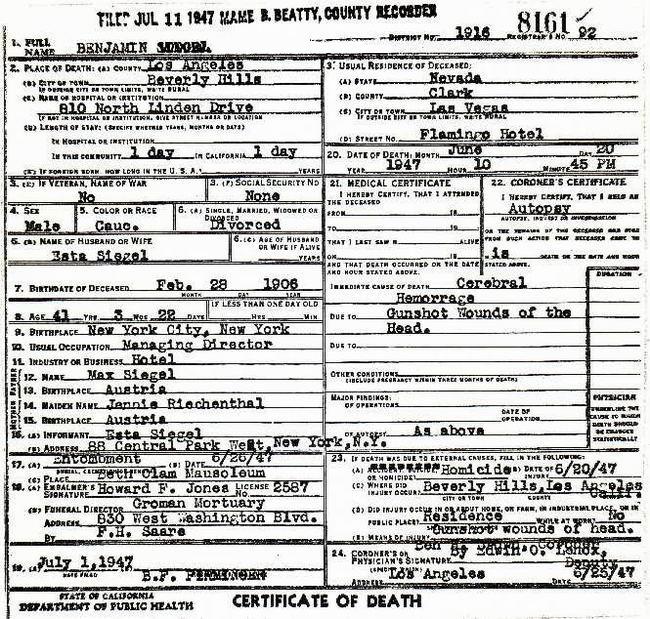 FILED JUL 11 1947 MAME B. BEATTY, COUNTY RECORDER
DISTRICT NO. 1916 REGISTRAR'S NO. 92
8161
1. FULL NAME BENJAMIN
2. PLACE OF DEATH: (A) COUNTY Los Angeles
(B) CITY OR TOWN Beverly Hills
IF OUTSIDE CITY OR TOWN LIMITS, WRITE RURAL
(C) NAME OF HOSPITAL OR INSTITUTION:
810 North Linden Drive
IF NOT IN HOSPITAL OR INSTITUTION, GIVE STREET NUMBER OR LOCATION
(D) LENGTH OF STAY: (SPECIFY WHETHER YEARS, MONTHS OR DAYS)
IN HOSPITAL OR INSTITUTION
IN THIS COMMUNITY 1 day IN CALIFORNIA 1 day
(E) IF FOREIGN BORN HOW LONG IN THE U.S.A.? YEARS
3. USUAL RESIDENCE OF DECEASED:
(A) STATE Nevada
(B) COUNTY Clark
(C) CITY OR TOWN Las Vegas
IF OUTSIDE CITY OR TOWN LIMITS, WRITE RURAL
(D) STREET NO. Flamingo Hotel
20. DATE OF DEATH: MONTH June DAY 20
YEAR 1947 HOUR 10 MINUTE 45 PM
3. (E) IF VETERAN, NAME OF WAR No
3. (F) SOCIAL SECURITY NO None
4. SEX Male
5. COLOR OR RACE Cauc.
6. (A) SINGLE, MARRIED, WIDOWED OR DIVORCED Divorced
6. (B) NAME OF HUSBAND OR WIFE Esta Siegel
6. (C) AGE OF HUSBAND OR WIFE IF ALIVE YEARS
7. BIRTHDATE OF DECEASED Feb. 28 1906
MONTH DAY YEAR
8. AGE 41 YRS 3 MOS 22 DAYS
IF LESS THAN ONE DAY OLD HRS MIN
9. BIRTHPLACE New York City, New York
10. USUAL OCCUPATION Managing Director
11. INDUSTRY OR BUSINESS Hotel
FATHER 12. NAME Max Siegel
13. BIRTHPLACE Austria
MOTHER 14. MAIDEN NAME Jennie Riechenthal
15. BIRTHPLACE Austria
16. (A) INFORMANT Esta Siegel
(B) ADDRESS 88 Central Park West, New York, N.Y.
17. (A) Entombment (B) DATE 6/26/47
(C) PLACE Beth Olam Mausoleum
18. (A) EMBALMER'S SIGNATURE Howard F. Jones LICENSE NO 2587
(B) FUNERAL DIRECTOR Groman Mortuary
ADDRESS 830 West Washington Blvd.
BY F.H. Saare
19. (A) July 1, 1947
DATE FILED
21. MEDICAL CERTIFICATE
I HEREBY CERTIFY, THAT I ATTENDED THE DECEASED
FROM 19
TO 19
THAT I LAST SAW H ALIVE
ON 19
AND THAT DEATH OCCURRED ON THE DATE AND HOUR STATED ABOVE.
22. CORONER'S CERTIFICATE
I HEREBY CERTIFY, THAT I HELD AN
Autopsy
AUTOPSY, INQUEST OR INVESTIGATION
is
STATED ABOVE.
DURATION
IMMEDIATE CAUSE OF DEATH Cerebral
Hemorrage
DUE TO Gunshot Wounds of the
Head.
DUE TO
OTHER CONDITIONS
(INCLUDE PREGNANCY WITHIN THREE MONTHS OF DEATH)
MAJOR FINDINGS:
OF OPERATIONS
DATE OF OPERATION
OF AUTOPSY As above
PHYSICIAN
UNDERLINE THE CAUSE TO WHICH DEATH SHOULD BE CHARGED STATISTICALLY
23. IF DEATH WAS DUE TO EXTERNAL CAUSES, FILL IN THE FOLLOWING:
(A) OR HOMICIDE? Homicide (B) DATE OF INJURY 6/20/47
(C) WHERE DID INJURY OCCUR? Beverly Hills, Los Angeles Calif.
CITY OR TOWN COUNTY
(D) DID INJURY OCCUR IN OR ABOUT HOME, OR FARM, IN INDUSTRIAL PLACE, OR IN
PUBLIC PLACE? Residence WHILE AT WORK? No
(E) MEANS OF INJURY Gunshot wounds of head.
24. CORONER'S OR PHYSICIAN'S SIGNATURE
By Edwin O. Lenox, Deputy
ADDRESS Los Angeles DATE 6/25/47
STATE OF CALIFORNIA
DEPARTMENT OF PUBLIC HEALTH
CERTIFICATE OF DEATH